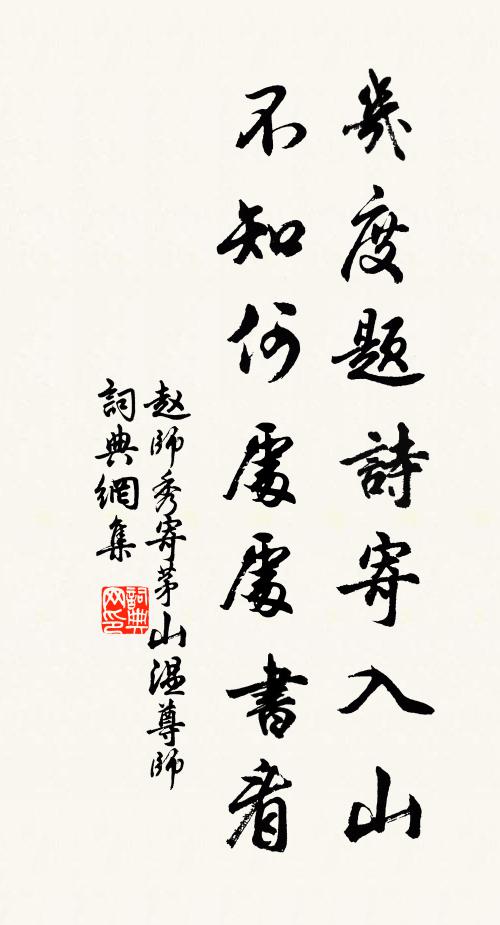 幾度題詩寄入山
不知何處處書看
赵師秀寄茅山温尊師
詞典網集
詞典网印